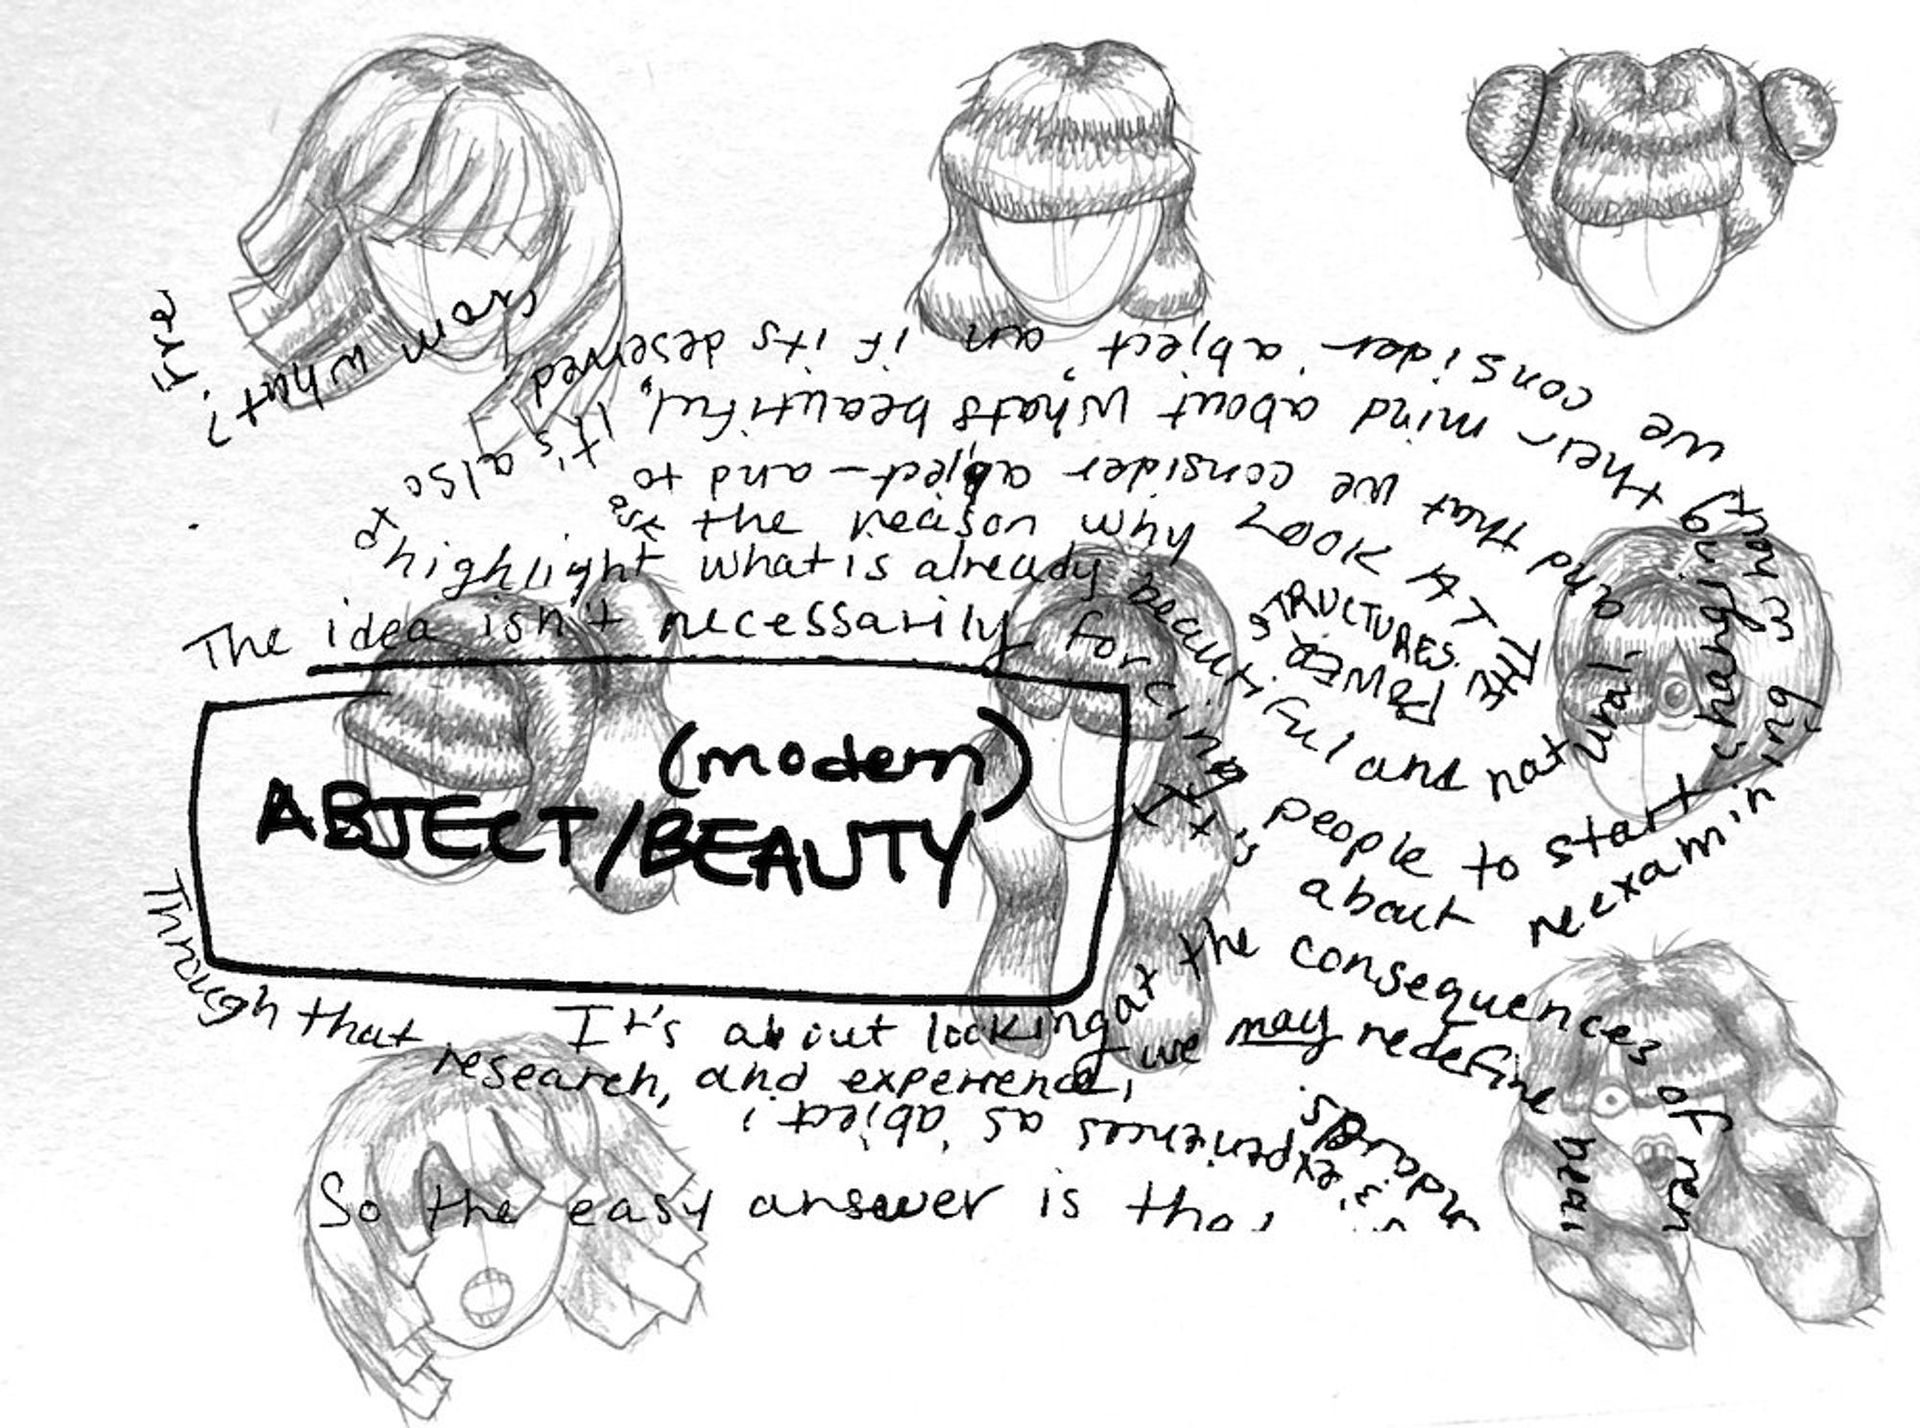 The idea isn't necessarily forcing people to start changing their mind about whats beautiful, it's also to
highlight what is already beautiful and natural, and that we consider abject - and to ask
the reason why
LOOK AT THE
POWER
STRUCTURES.
It is about reexamining what we consider "abject" an if its deserved
what?
(modern)
ABJECT/BEAUTY
It's about looking at the consequences of
experiences as 'abject'
Through that research, and experience, we may redefine
So the easy answer is